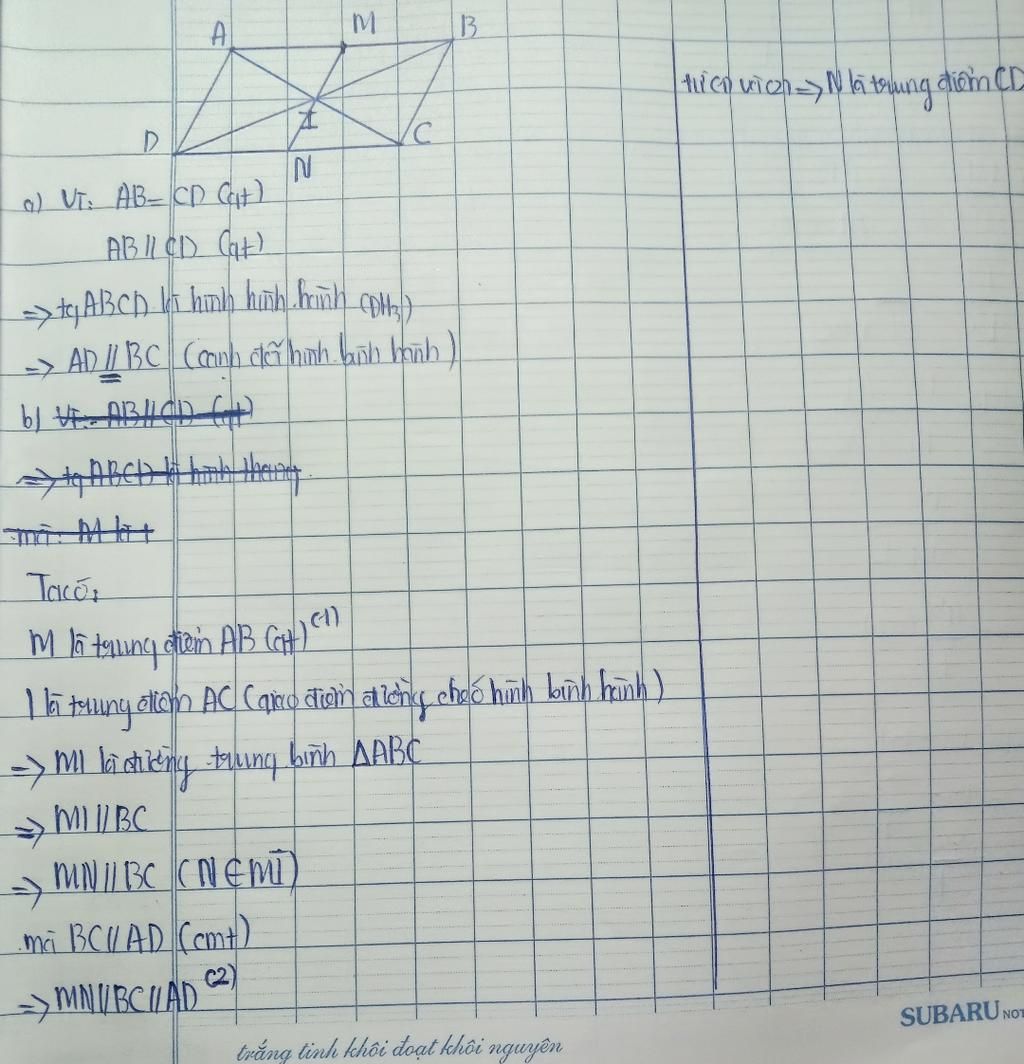 A M B
I
D N C
a) Vì: AB = CD (gt)
AB // CD (gt)
=> tg ABCD là hình bình hành (DH3)
=> AD // BC (cạnh đối hình bình hành)
b) Vì: AB // CD (gt)
=> tg ABCD là hình thang
mà: M là t
Ta có:
M là trung điểm AB (gt) (1)
I là trung điểm AC (giao điểm đường chéo hình bình hành)
=> MI là đường trung bình ΔABC
=> MI // BC
=> MN // BC (N ∈ MI)
mà BC // AD (cmt)
=> MN // BC // AD (2)
từ (1) và (2) => N là trung điểm CD
SUBARU NOT
trắng tinh khôi đoạt khôi nguyên